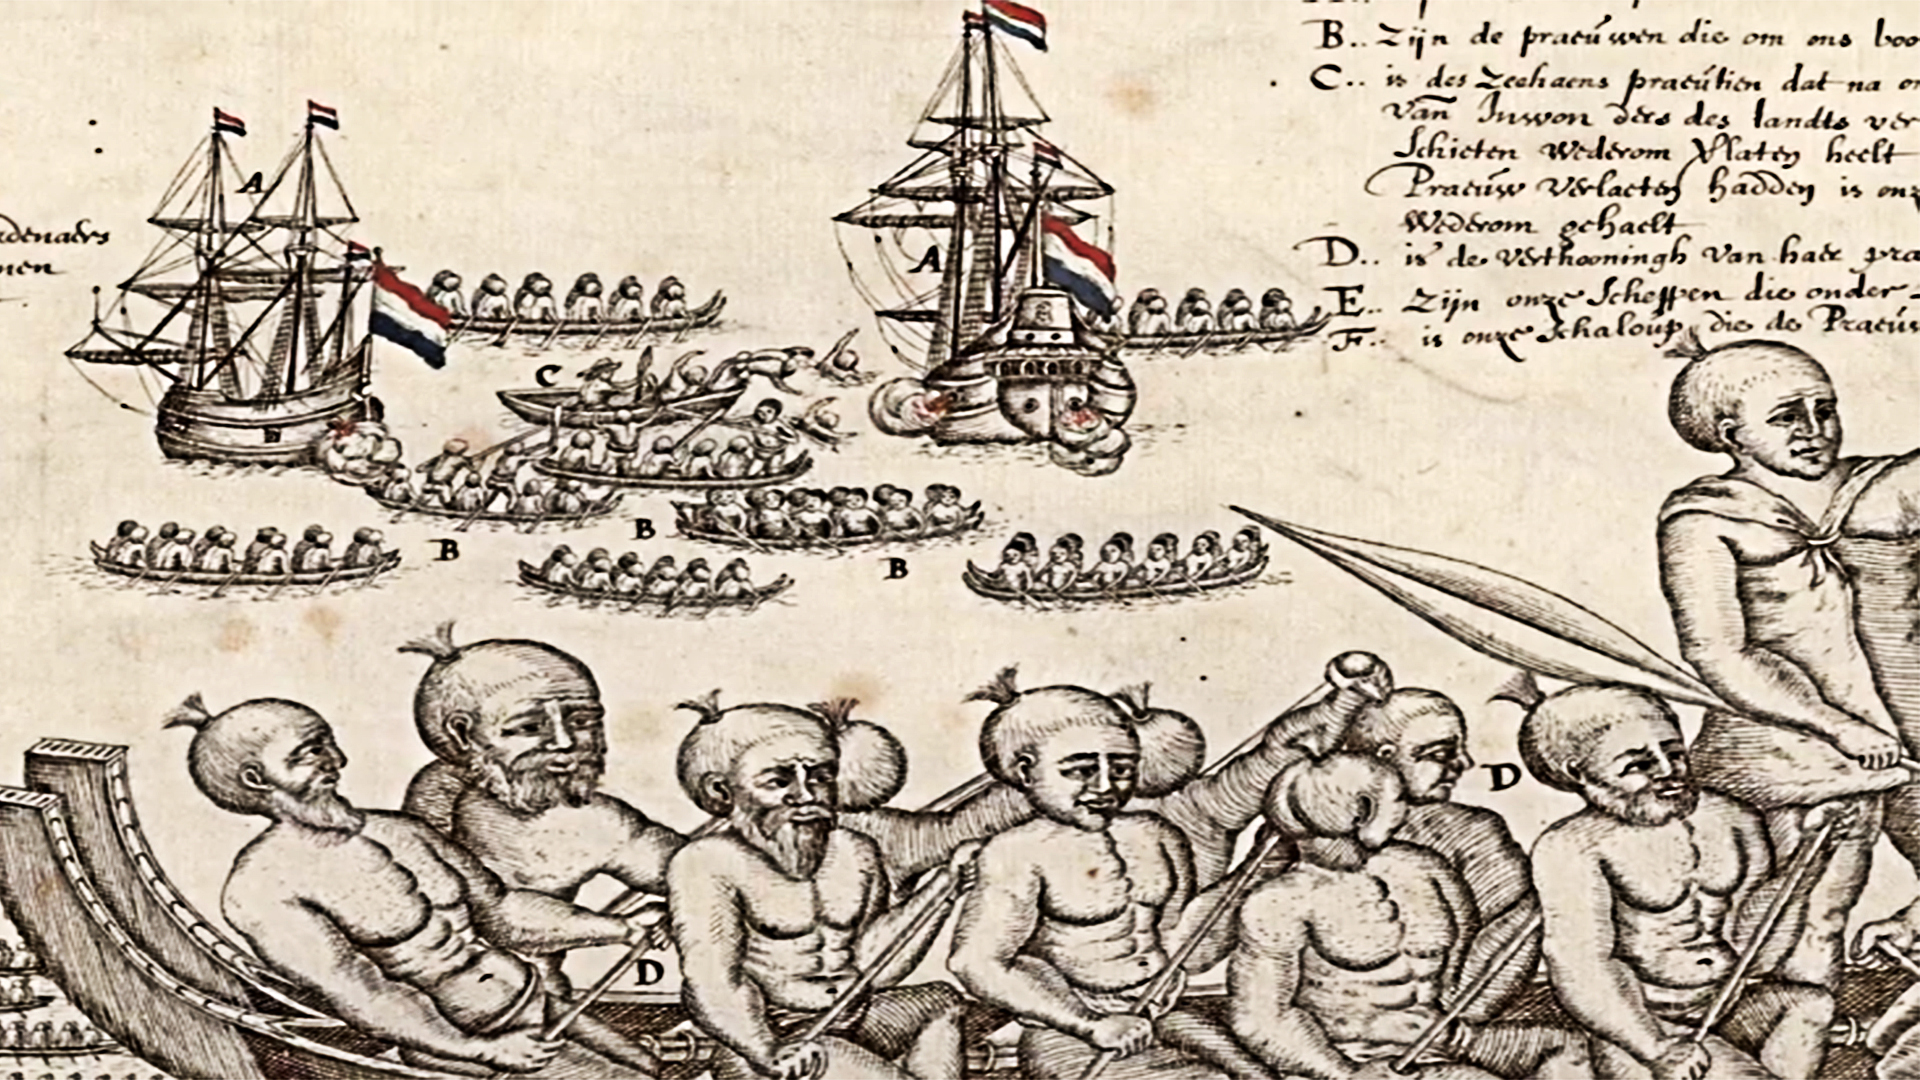 B.. Zijn de praeúwen die om ons boo
C.. is des Zeehaens praeútien dat na on
van Inwon ders des landts ver
Schieten wederom Vlaten heelt
Praeúw verlaeten hadden is onz
Wederom gehaelt
D.. is de verthooningh van haer pra
E.. Zijn onze Scheppen die onder
F.. is onze Schaloup, die de Praeúw
denaers
nen
A
A
C
B
B
B
D
D